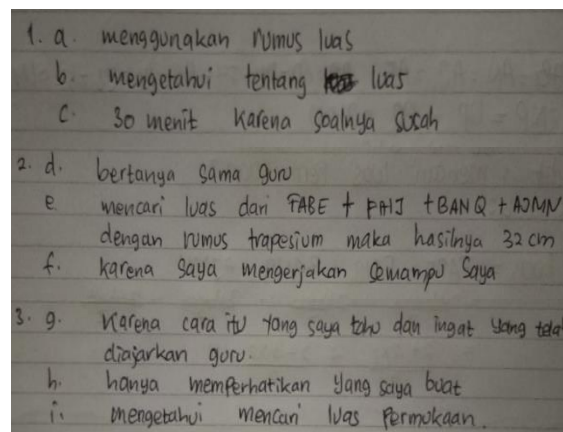 1. a. menggunakan rumus luas
b. mengetahui tentang luas
c. 30 menit karena soalnya susah
2. d. bertanya sama guru
e mencari luas dari FABE + PAHJ + BANQ + AJMN
dengan rumus trapesium maka hasilnya 32 cm
f. karena saya mengerjakan semampu saya
3. g. karena cara itu yang saya tahu dan ingat yang tela
diajarkan guru.
h. hanya memperhatikan yang saya buat
i. mengetahui mencari luas permukaan.